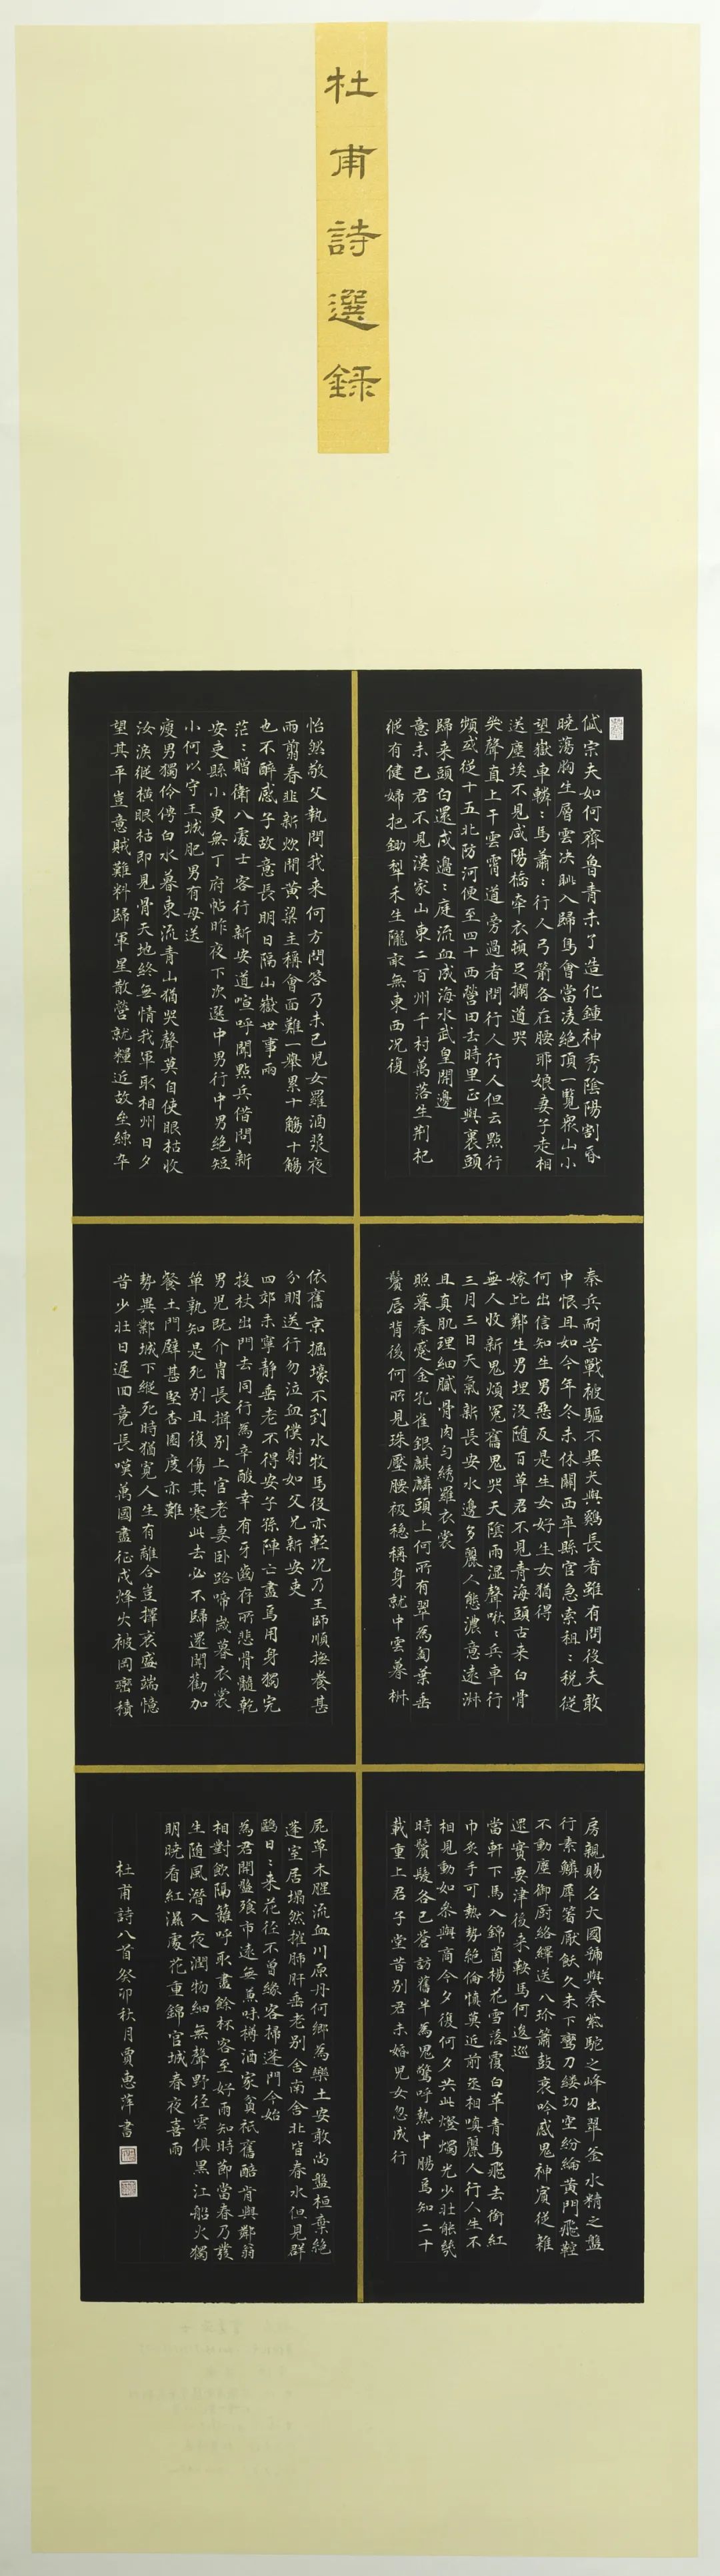 杜甫詩選錄
岱宗夫如何齊魯青未了造化鍾神秀陰陽割昏
曉蕩胸生層雲決眦入歸鳥會當凌絕頂一覽衆山小
望嶽車轔〻馬蕭〻行人弓箭各在腰耶娘妻子走相
送塵埃不見咸陽橋牽衣頓足攔道哭
哭聲直上干雲霄道旁過者問行人行人但云點行
頻或從十五北防河便至四十西營田去時里正與裹頭
歸來頭白還戍邊〻庭流血成海水武皇開邊
意未已君不見漢家山東二百州千村萬落生荊杞
縱有健婦把鋤犁禾生隴畝無東西況復
秦兵耐苦戰被驅不異犬與雞長者雖有問役夫敢
申恨且如今年冬未休關西卒縣官急索租〻稅從
何出信知生男惡反是生女好生女猶得
嫁比鄰生男埋沒隨百草君不見青海頭古來白骨
無人收新鬼煩冤舊鬼哭天陰雨濕聲啾〻兵車行
三月三日天氣新長安水邊多麗人態濃意遠淑
且真肌理細膩骨肉勻綉羅衣裳
照暮春蹙金孔雀銀麒麟頭上何所有翠為匎葉垂
鬢唇背後何所見珠壓腰衱穩稱身就中雲幕椒
房親賜名大國虢與秦紫駝之峰出翠釜水精之盤
行素鱗犀箸厭飫久未下鸞刀縷切空紛綸黃門飛鞚
不動塵御廚絡繹送八珍簫鼓哀吟感鬼神賓從雜
遝實要津後來鞍馬何逡巡
當軒下馬入錦茵楊花雪落覆白蘋青鳥飛去銜紅
巾炙手可熱勢絕倫慎莫近前丞相嗔麗人行人生不
相見動如參與商今夕復何夕共此燈燭光少壯能幾
時鬢髮各已蒼訪舊半為鬼驚呼熱中腸焉知二十
載重上君子堂昔別君未婚兒女忽成行
怡然敬父執問我來何方問答乃未已兒女羅酒漿夜
雨翦春韭新炊間黃粱主稱會面難一舉累十觴十觴
也不醉感子故意長明日隔山嶽世事兩
茫〻贈衛八處士客行新安道喧呼聞點兵借問新
安吏縣小更無丁府帖昨夜下次選中男行中男絕短
小何以守王城肥男有母送
瘦男獨伶俜白水暮東流青山猶哭聲莫自使眼枯收
汝淚縱橫眼枯即見骨天地終無情我軍取相州日夕
望其平豈意賊難料歸軍星散營就糧近故壘練卒
依舊京掘壕不到水牧馬役亦輕況乃王師順撫養甚
分明送行勿泣血僕射如父兄新安吏
四郊未寧靜垂老不得安子孫陣亡盡焉用身獨完
投杖出門去同行為辛酸幸有牙齒存所悲骨髓乾
男兒既介胄長揖別上官老妻卧路啼歲暮衣裳
單孰知是死別且復傷其寒此去必不歸還聞勸加
餐土門壁甚堅杏園度亦難
勢異鄴城下縱死時猶寬人生有離合豈擇衰盛端憶
昔少壯日遲回竟長嘆萬國盡征戍烽火被岡巒積
屍草木腥流血川原丹何鄉為樂土安敢尚盤桓棄絕
蓬室居塌然摧肺肝垂老別舍南舍北皆春水但見群
鷗日〻來花徑不曾緣客掃蓬門今始
為君開盤飧市遠無兼味樽酒家貧衹舊醅肯與鄰翁
相對飲隔籬呼取盡餘杯客至好雨知時節當春乃發
生隨風潛入夜潤物細無聲野徑雲俱黑江船火獨
明曉看紅濕處花重錦官城春夜喜雨
杜甫詩八首癸卯秋月賈惠萍書